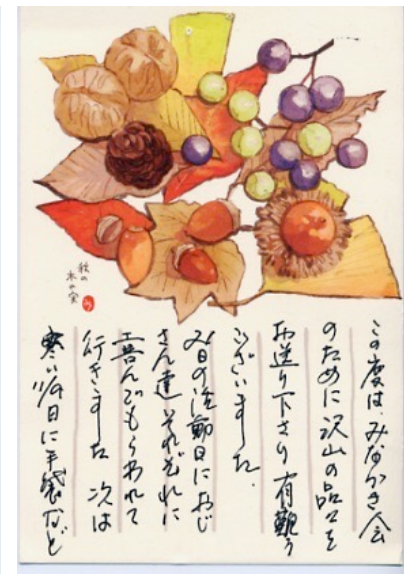 秋の
木の実
この度は、みなづき会
のために沢山の品々を
お送り下さり有難う
ございました。
日の活動日におじ
さん達それぞれに
喜んでもらわれて
行きました 次は
寒い日に手袋など